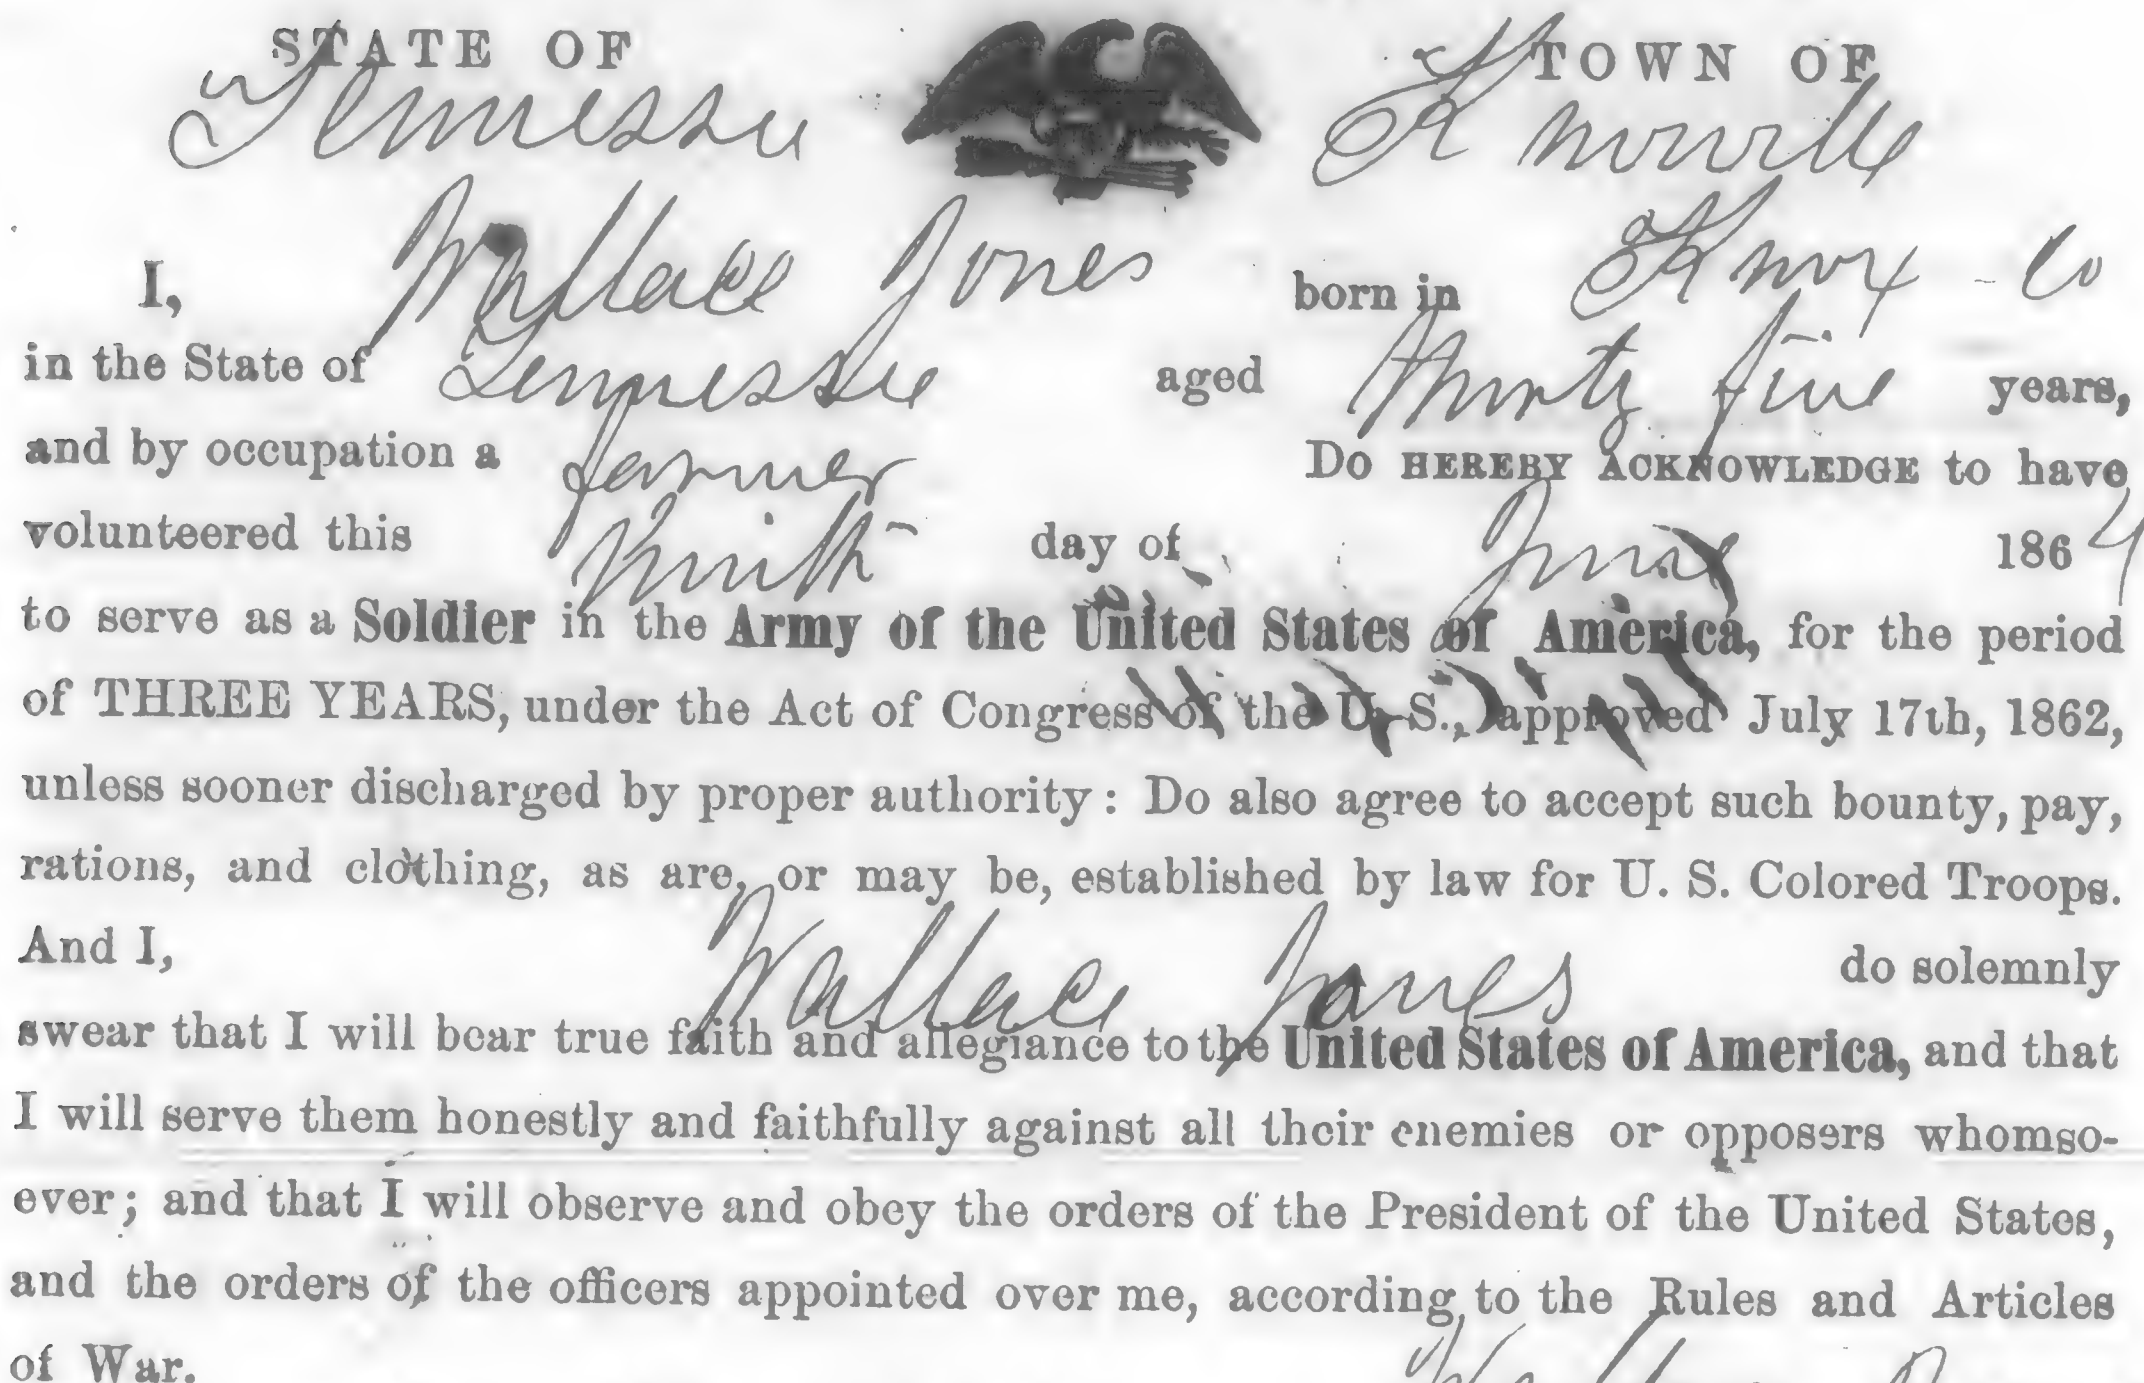 STATE OF TOWN OF
Tennessee Knoxville
I, Wallace Jones born in Knox Co
in the State of Tennessee aged Thirty five years,
and by occupation a farmer Do HEREBY ACKNOWLEDGE to have
volunteered this Ninth day of June 1864
to serve as a Soldier in the Army of the United States of America, for the period
of THREE YEARS, under the Act of Congress of the U. S., approved July 17th, 1862,
unless sooner discharged by proper authority: Do also agree to accept such bounty, pay,
rations, and clothing, as are, or may be, established by law for U. S. Colored Troops.
And I, Wallace Jones do solemnly
swear that I will bear true faith and allegiance to the United States of America, and that
I will serve them honestly and faithfully against all their enemies or opposers whomso-
ever; and that I will observe and obey the orders of the President of the United States,
and the orders of the officers appointed over me, according to the Rules and Articles
of War.